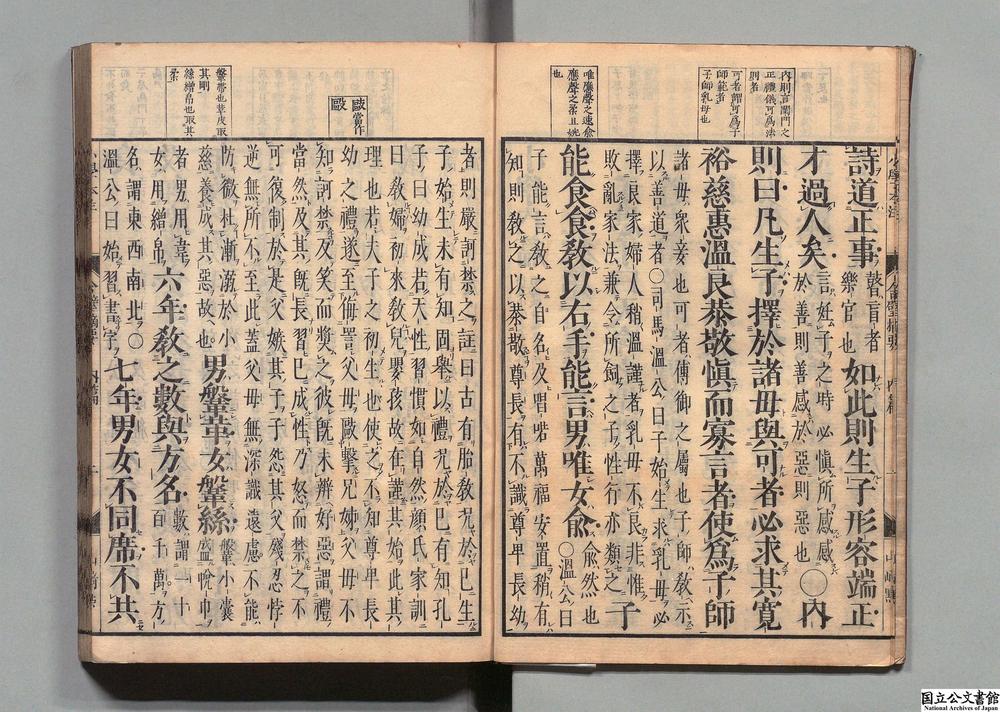 內則言閨門之
正禮儀可爲法
則者
可者謂可爲子
師範者
子師乳母也
唯應聲之速兪
應聲之柔且婉
也
詩道正事瞽盲者樂官也如此則生子形容端正
才過人矣言姙子之時必愼所感感於善則善感於惡則惡也○內
則曰凡生子擇於諸母與可者必求其寬
裕慈惠溫良恭敬愼而寡言者使爲子師
諸母衆妾也可者傅御之屬也子師敎示
以善道者○司馬溫公曰子始生求乳母必
擇良家婦人稍溫謹者乳母不良非惟
敗亂家法兼令所飼之子性行亦類之子
能食食敎以右手能言男唯女兪兪然也○溫公曰
子能言敎之自名及唱喏萬福安置稍有
知則敎之以恭敬尊長有不識尊卑長幼
歐當作
毆
鞶帶也革皮取
其剛
絲繒帛也取其
柔
者則嚴訶禁之註曰古有胎敎況於已生
子始生未有知固舉以禮況於已有知孔
子曰幼成若天性習慣如自然顏氏家訓
曰敎婦初來敎兒嬰孩故在謹其始此其
理也若夫子之初生也使之不知尊卑長
幼之禮遂至侮詈父母歐擊兄姊父母不
知訶禁反笑而奬之彼旣未辨好惡謂禮
當然及其旣長習已成性乃怒而禁之不
可復制於是父嫉其子子怨其父殘忍悖
逆無所不至此蓋父母無深識遠慮不能
防微杜漸溺於小
慈養成其惡故也男鞶革女鞶絲鞶小囊盛帨巾
者男用韋
女用繒帛六年敎之數與方名數謂一十百千萬方
名謂東西南北○
溫公曰始習書字七年男女不同席不共
國立公文書館
National Archives of Japan